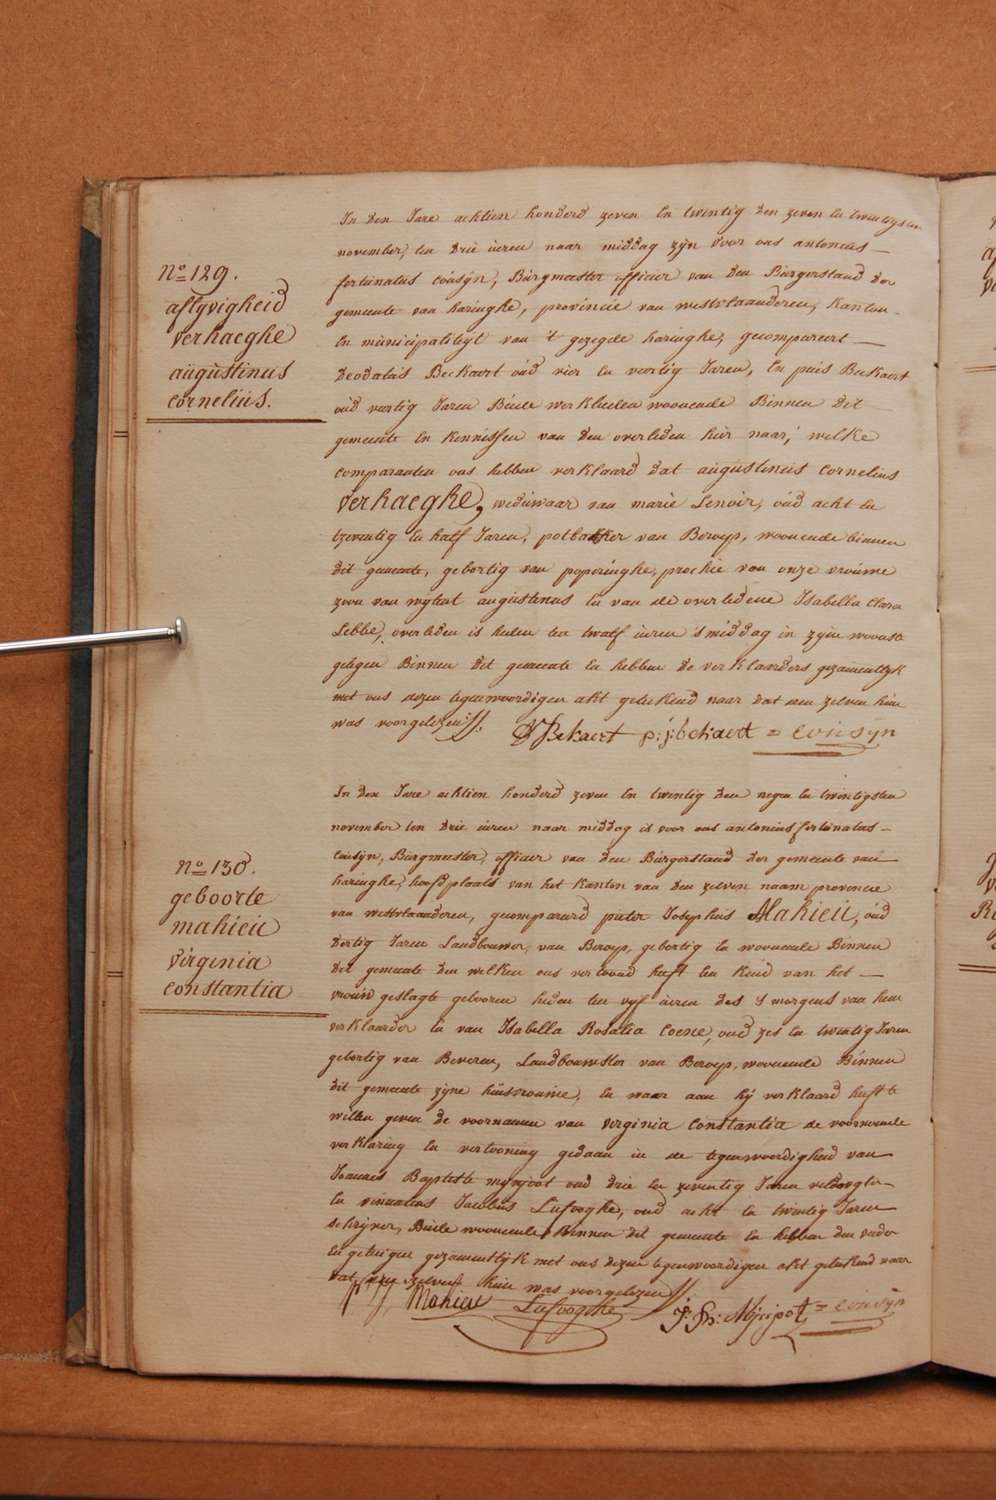 In den Jare achtien honderd zeven en twintig den zeven en twintigsten
november, ten drie uren naar middag zyn voor ons antonius
fortunatus Cousÿn, Burgmeester officier van den Burgerstand der
gemeente van haringhe, provincie van westvlaanderen, kanton
en municipaliteyt van 't gezegde haringhe, gecompareert
Deodatus Beckaert oud vier en veertig Jaren, en puis Beckaert
oud veertig Jaren Beide werklieden woonende Binnen dit
gemeente en kennissen van den overleden hier naar, welke
comparanten ons hebben verklaard dat augustinus cornelius
verhaeghe, weduwaar van marie Lenoir, oud acht en
tzeventig en half Jaren, potbakker van Beroep, woonende binnen
dit gemeente, gebortig van poperinghe, prochie van onze vrouwe
zoon van wylent augustinus en van de overledene Isabella Clara
Lebbe, overleden is heden ten twalf uren 's middag in zyne woonste
gelegen Binnen dit gemeente en hebben de verklaarders gezamentlyk
met ons dezen tegenwoordigen akt geteekend naar dat aen zelven hun
was voorgelezen //.
D Bekaert p:j:bekaert = cousÿn
nº 129.
aflyvigheid
verhaeghe
augustinus
cornelius.
In den Jare achtien honderd zeven en twintig den negen en twintigsten
november ten drie uren naar middag is voor ons antonius fortunatus
Cousÿn, Burgmeester, officier van den Burgerstand der gemeente van
haringhe, hoofdplaats van het kanton van den zelven naam provincie
van westvlaanderen, gecompareerd pieter Josephus Mahieu, oud
dertig Jaren Landbouwer, van Beroep, gebortig en woonende Binnen
dit gemeente den welken ons vertoond heeft een kind van het
vrouw geslagte geboren heden ten vyf uren des 's morgens van hem
verklaarder en van Isabella Rosalia Coene, oud zes en twintig Jaren
gebortig van Beveren, Landbouwster van Beroep, woonende Binnen
dit gemeente zyne huisvrouwe, en waar aan hy verklaard heeft te
willen geven de voornamen van virginia constantia de voornoemde
verklaring en vertooning gedaan in de tegenwoordigheid van
Joannes Baptiste oud drie en zeventig Jaren veldwagter
en vincentius Jacobus Liefooghe, oud acht en twintig Jaren
schryver, Beide woonende Binnen dit gemeente en hebben den vader
en getuigen gezamentlyk met ons dezen tegenwoordigen akt geteekend naar
dat aen zelven hun was voorgelezen //
Mahieu Liefooghe = cousÿn
nº 130.
geboorte
mahieu
virginia
constantia